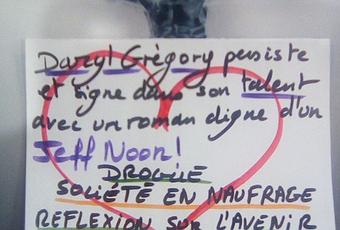 Daryl Gregory persiste
et signe dans son talent
avec un roman digne d'un
Jeff Noon!
DROGUE
SOCIÉTÉ EN NAUFRAGE
REFLEXION SUR L'AVENIR